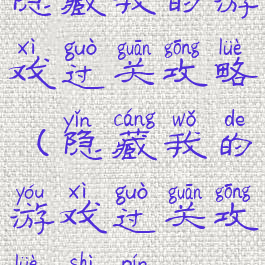 隐藏我的游
xì guò guān gōng lüè
戏过关攻略
yǐn cáng wǒ de
（隐藏我的
yóu xì guò guān gōng
游戏过关攻
lüè shì pín